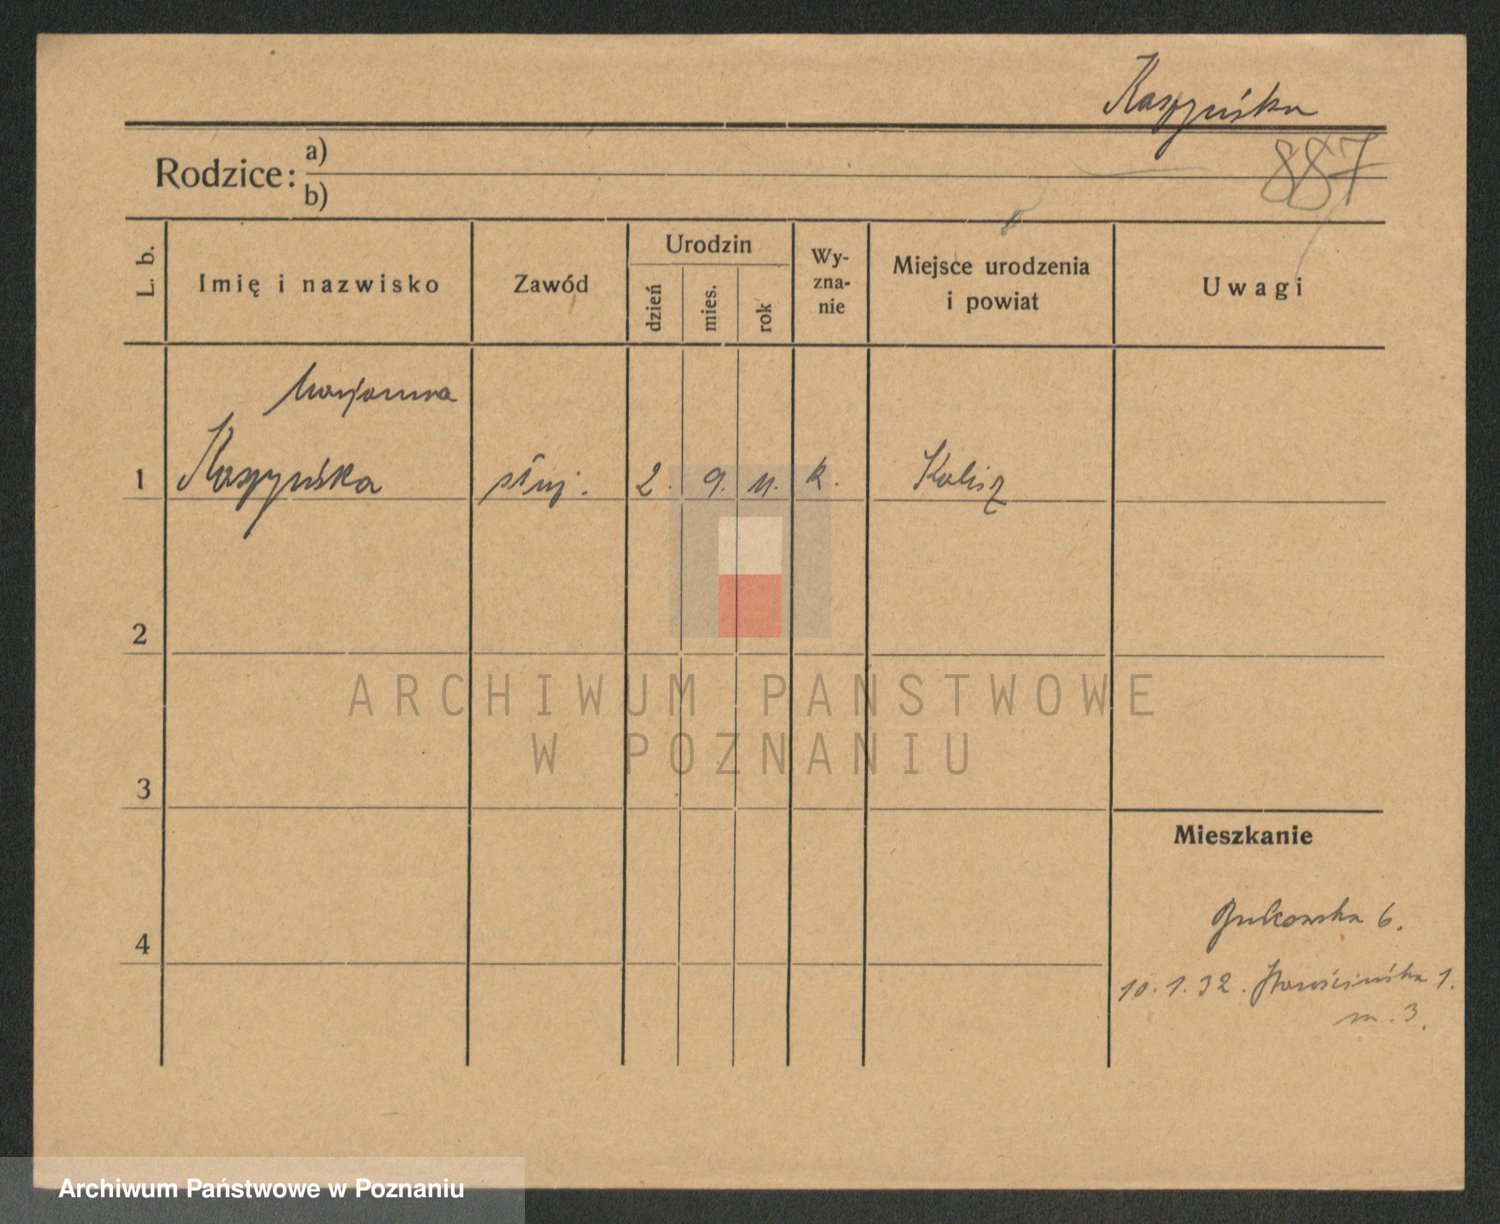 Kaspryńska
887
Rodzice: a)
b)
L. b.
Imię i nazwisko
Zawód
Urodzin
dzień
mies.
rok
Wy-
zna-
nie
Miejsce urodzenia
i powiat
Uwagi
Marjanna
1 służ. 2. 9. 11. k. Kalisz
2
ARCHIWUM PAŃSTWOWE
W POZNANIU
3
Mieszkanie
Bukowska 6.
4
10.1.32. 1.
m. 3.
Archiwum Państwowe w Poznaniu